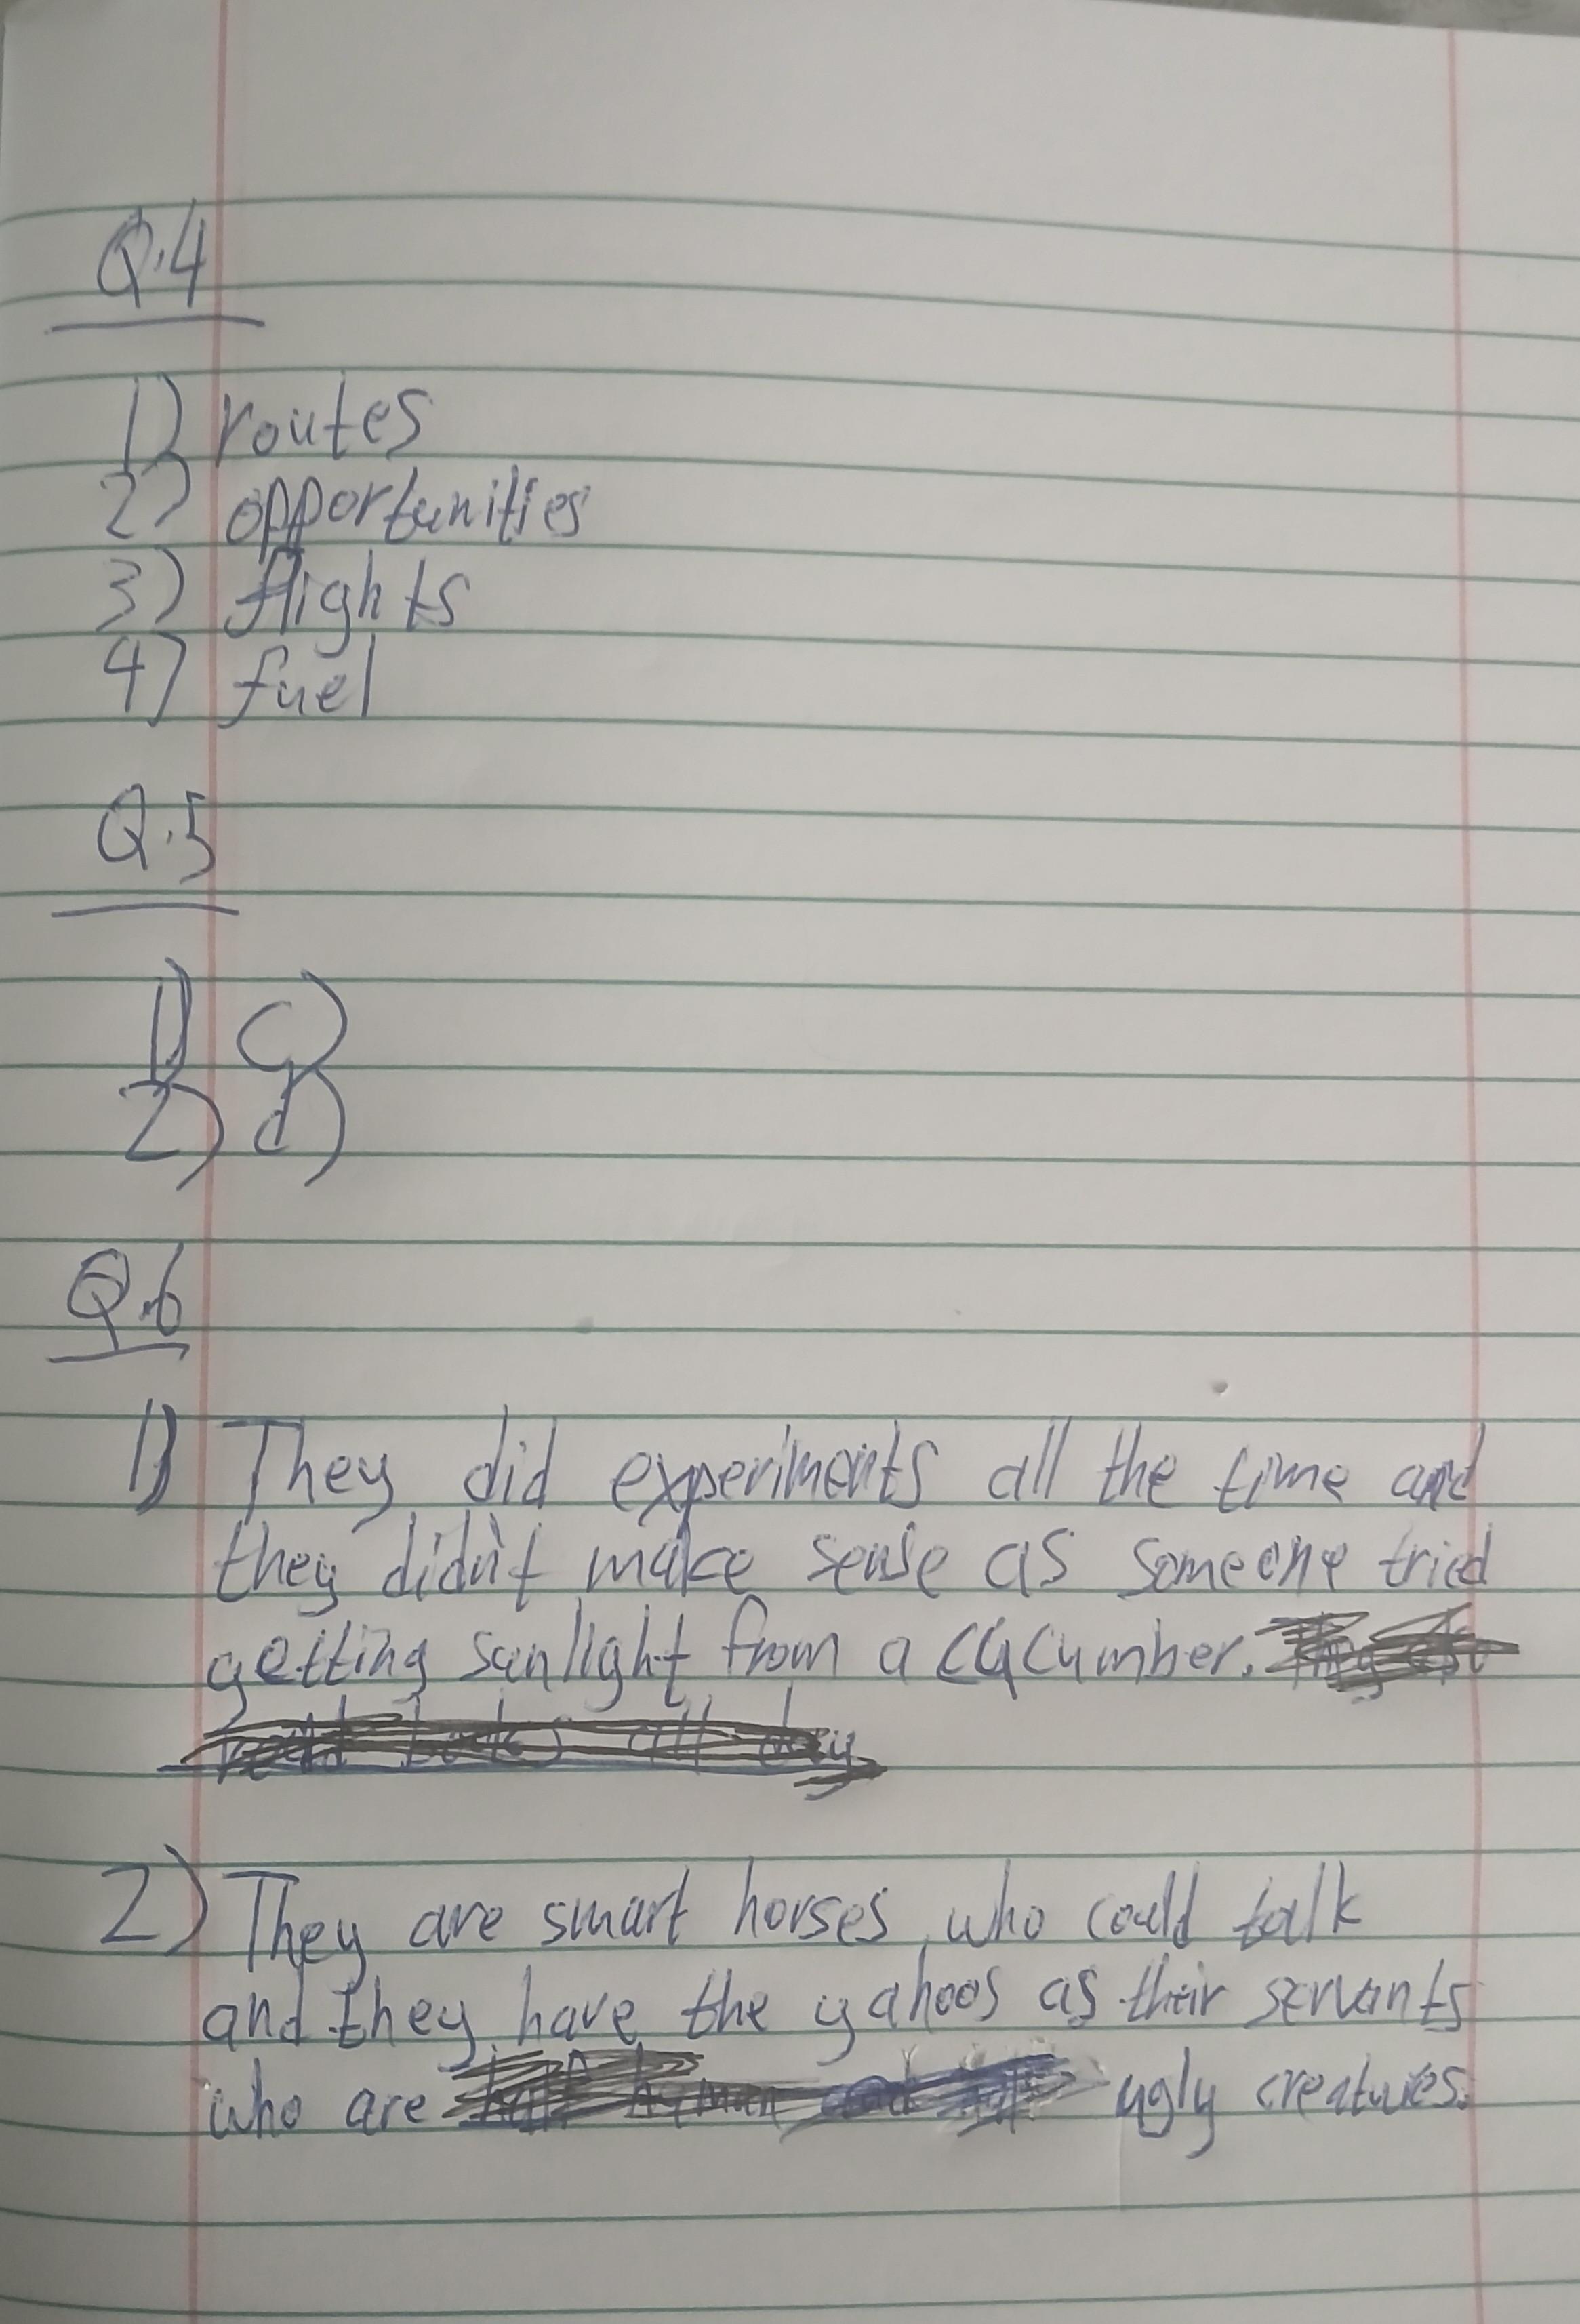 Q.4
1) routes
2) opportunities
3) flights
4) fuel
Q.5
1) c)
2) d)
Q.6
1) They did experiments all the time and
they didn't make sense as someone tried
getting sunlight from a cucumber.
2) They are smart horses, who could talk
and they have the yahoos as their servants
who are ugly creatures.